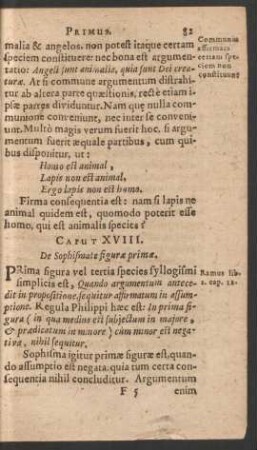 PRIMUS. 82
malia & angelos. non potest itaque certam
speciem constituere: nec bona est argumen-
tatio: Angeli sunt animalia, quia sunt Dei crea-
turæ. At si commune argumentum distrahi-
tur ab altera parte quæstionis, rectè etiam i-
psæ partes dividuntur. Nam quæ nulla com-
munione conveniunt, nec inter se conveni-
unt. Multò magis verum fuerit hoc, si argu-
mentum fuerit æquale partibus, cum qui-
bus disponitur, ut:
Homo est animal,
Lapis non est animal,
Ergo lapis non est homo.
Firma consequentia est: nam si lapis ne
animal quidem est, quomodo poterit esse
homo, qui est animalis species?
CAPUT XVIII.
De Sophismate figuræ primæ.
PRima figura vel tertia species syllogismi
simplicis est, Quando argumentum antece-
dit in propositione, sequitur affirmatum in assum-
ptione. Regula Philippi hæc est: In prima fi-
gura (in qua medius est subjectum in majore,
& prædicatum in minore) cùm minor est nega-
tiva, nihil sequitur.
Sophisma igitur primæ figuræ est, quan-
do assumptio est negata: quia tum certa con-
sequentia nihil concluditur. Argumentum
F 5 enim
Communia
affirmata
certam spe-
ciem non
constituunt
Ramus lib.
2. cap. 12.